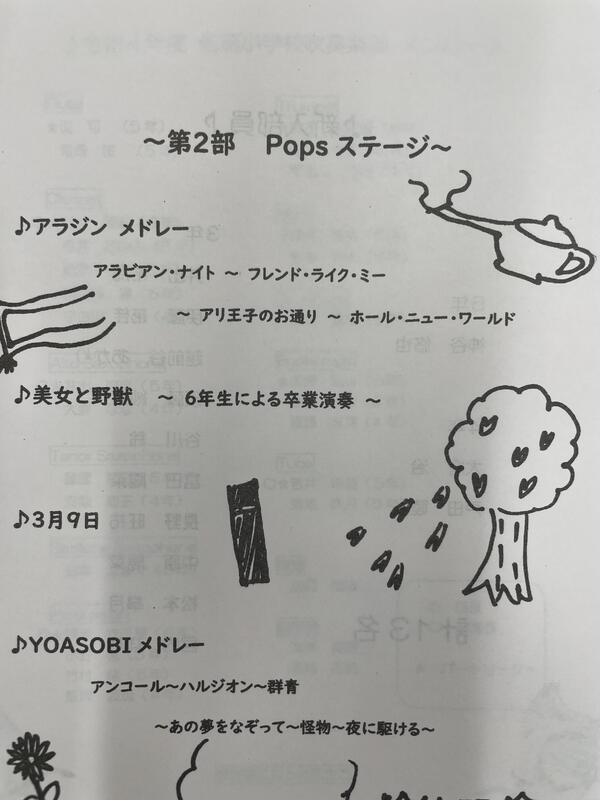 ～第2部 Pops ステージ～
♪アラジン メドレー
アラビアン・ナイト ～ フレンド・ライク・ミー
～ アリ王子のお通り ～ ホール・ニュー・ワールド
♪美女と野獣 ～ 6年生による卒業演奏 ～
♪3月9日
♪YOASOBIメドレー
アンコール～ハルジオン～群青
～あの夢をなぞって～怪物～夜に駆ける～